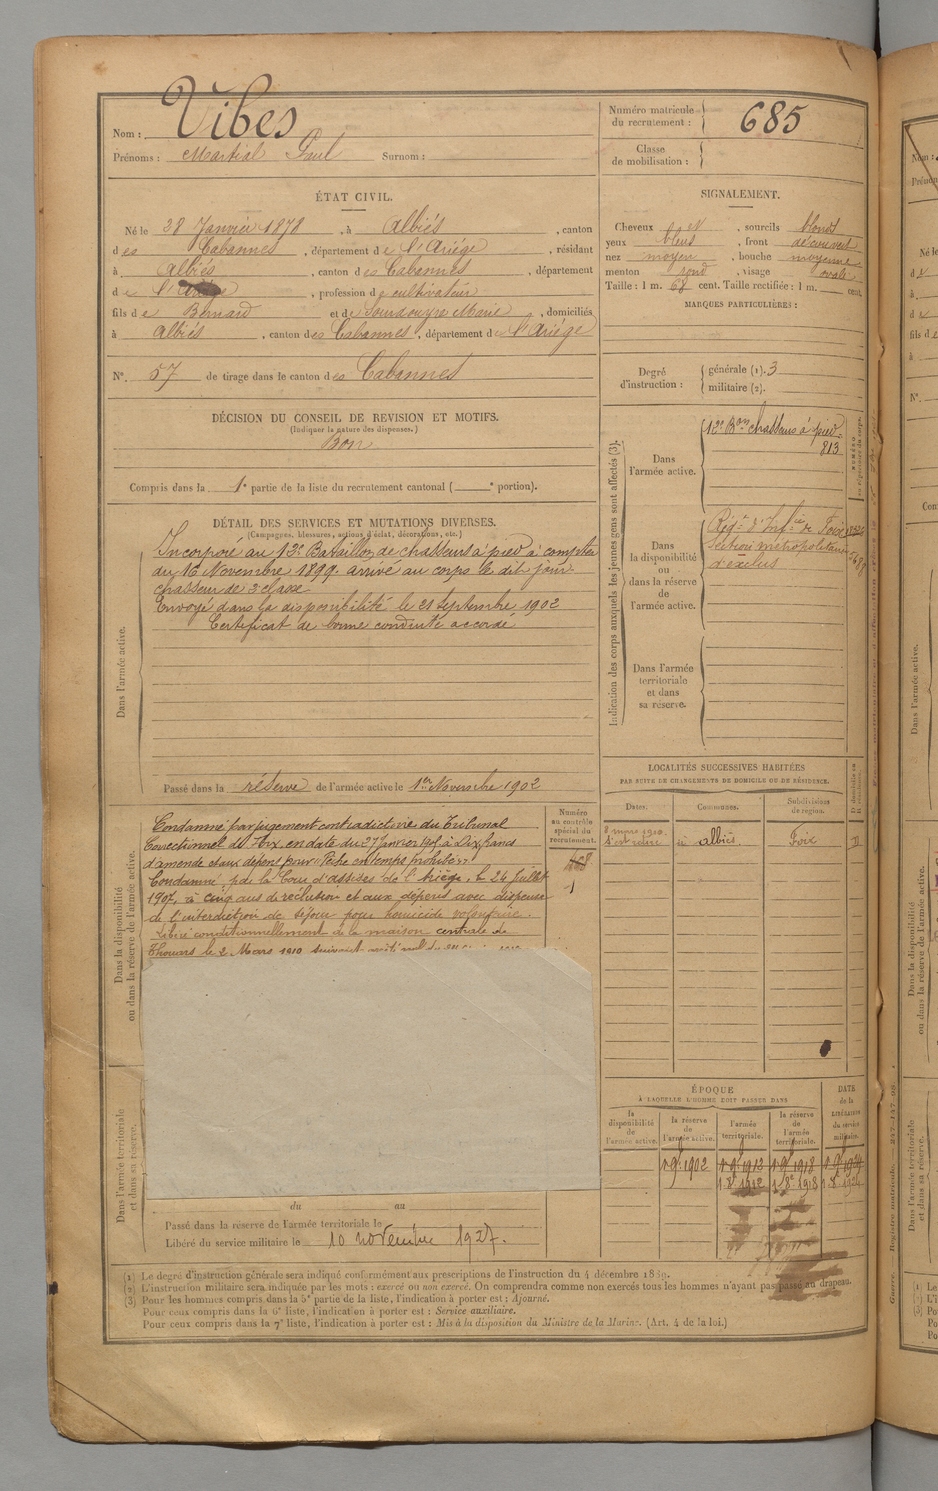 Nom : Vibes
Prénoms : Martial Paul Surnom :
Numéro matricule du recrutement : 685
Classe de mobilisation :
ÉTAT CIVIL.
Né le 28 Janvier 1878, à Albiés, canton
des Cabannes, département de l'Ariége, résidant
à Albiés, canton des Cabannes, département
de l'Ariége, profession de cultivateur
fils de Bernard et de Marie, domiciliés
à Albiés, canton des Cabannes, département de l'Ariége
N°. 57 de tirage dans le canton des Cabannes
SIGNALEMENT.
Cheveux , sourcils blonds
yeux bleus, front découvert
nez moyen, bouche moyenne
menton rond, visage ovale
Taille : 1 m. 68 cent. Taille rectifiée : 1 m. cent.
MARQUES PARTICULIÈRES :
Degré d'instruction : générale (1). 3
militaire (2).
DÉCISION DU CONSEIL DE REVISION ET MOTIFS.
(Indiquer la nature des dispenses.)
Bon
Compris dans la 1e partie de la liste du recrutement cantonal ( e portion).
DÉTAIL DES SERVICES ET MUTATIONS DIVERSES.
(Campagnes, blessures, actions d'éclat, décorations, etc.)
Dans l'armée active.
Incorporé au 13e Bataillon de chasseurs à pied à compter
du 16 Novembre 1899. arrivé au corps le dit jour
chasseur de 2e classe
Envoyé dans la disponibilité le 21 septembre 1902
Certificat de bonne conduite accordé
Passé dans la réserve de l'armée active le 1er Novembre 1902
Indication des corps auxquels les jeunes gens sont affectés (3).
Dans l'armée active.
Bon chasseurs à pied
813
Dans la disponibilité ou dans la réserve de l'armée active.
Régt d'Infie de Foix
Section métropolitaine
d'exclus
Dans l'armée territoriale et dans sa réserve.
LOCALITÉS SUCCESSIVES HABITÉES
PAR SUITE DE CHANGEMENTS DE DOMICILE OU DE RÉSIDENCE.
Dates. Communes. Subdivisions de région.
mars 1910.
s'est retiré à albiés Foix D
Dans la disponibilité ou dans la réserve de l'armée active.
Numéro au contrôle spécial du recrutement.
408
1
Condamné par jugement contradictoire du Tribunal
Correctionnel de Foix, en date du 27 Janvier 1905 à Dix francs
d'amende et aux dépens pour "Pêche en temps prohibé".
Condamné p. de la Cour d'assises de l'Ariége, le 24 Juillet
1907, à cinq ans de réclusion et aux dépens avec dispense
de l'interdiction de séjour pour homicide volontaire.
Libéré conditionnellement de la maison centrale de
Thouars le 2 Mars 1910 suivant
ÉPOQUE
À LAQUELLE L'HOMME DOIT PASSER DANS
la disponibilité de l'armée active. la réserve de l'armée active. l'armée territoriale. la réserve de l'armée territoriale. DATE de la LIBÉRATION du service militaire.
1 9e 1902 1 9e 1912 1 9e 1918 1 9e 1924
1 8e 1912 1 8e 1918 1 8e 1924
Dans l'armée territoriale et dans sa réserve.
du au
Passé dans la réserve de l'armée territoriale le
Libéré du service militaire le 10 novembre 1927.
(1) Le degré d'instruction générale sera indiqué conformément aux prescriptions de l'instruction du 4 décembre 1889.
(2) L'instruction militaire sera indiquée par les mots : exercé ou non exercé. On comprendra comme non exercés tous les hommes n'ayant pas passé au drapeau.
(3) Pour les hommes compris dans la 5e partie de la liste, l'indication à porter est : Ajourné.
Pour ceux compris dans la 6e liste, l'indication à porter est : Service auxiliaire.
Pour ceux compris dans la 7e liste, l'indication à porter est : Mis à la disposition du Ministre de la Marine. (Art. 4 de la loi.)